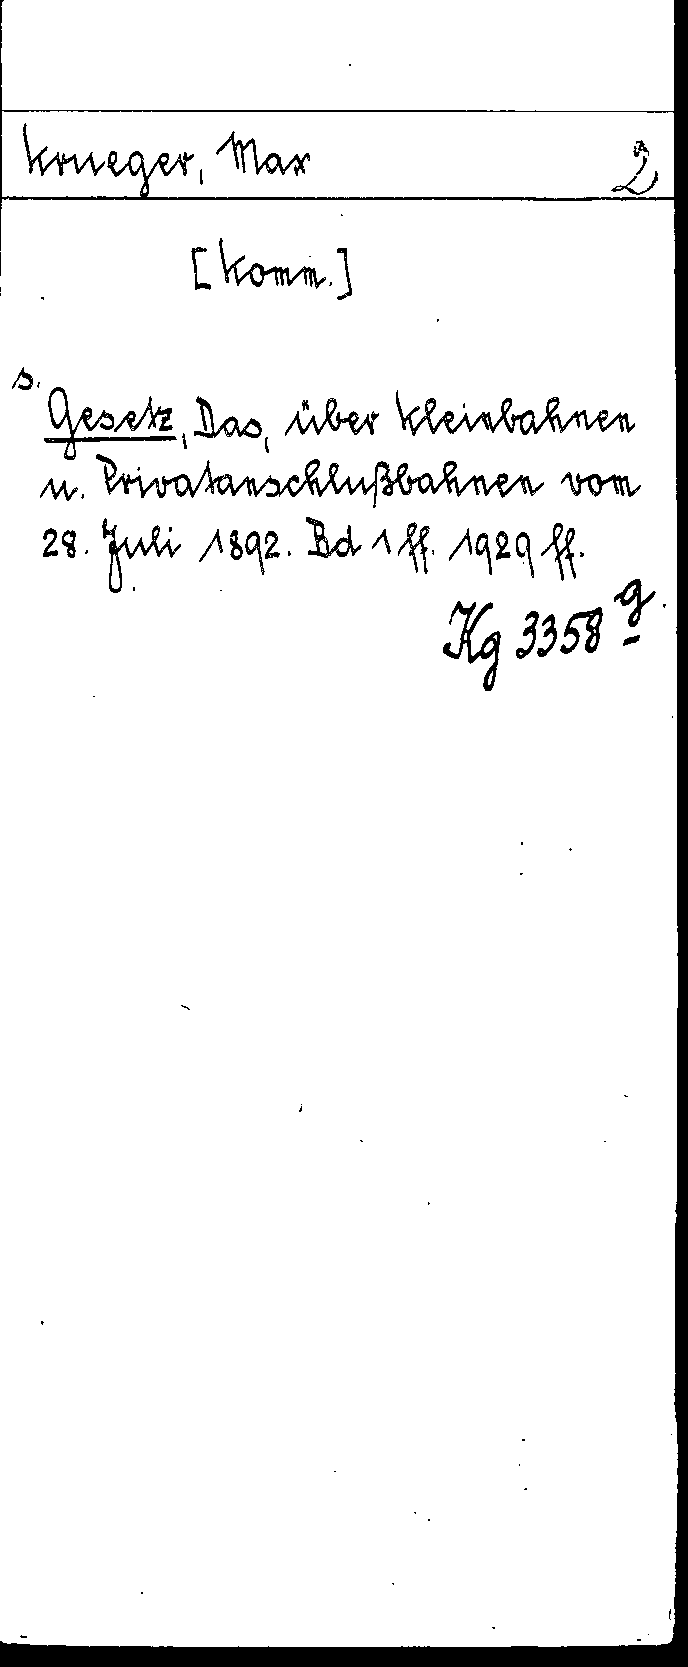 Krueger, Max 2
[Komm.]
s.
Gesetz, Das, über Kleinbahnen
u. Privatanschlußbahnen vom
28. Juli 1892. Bd 1 ff. 1929 ff.
Kg 3358 g